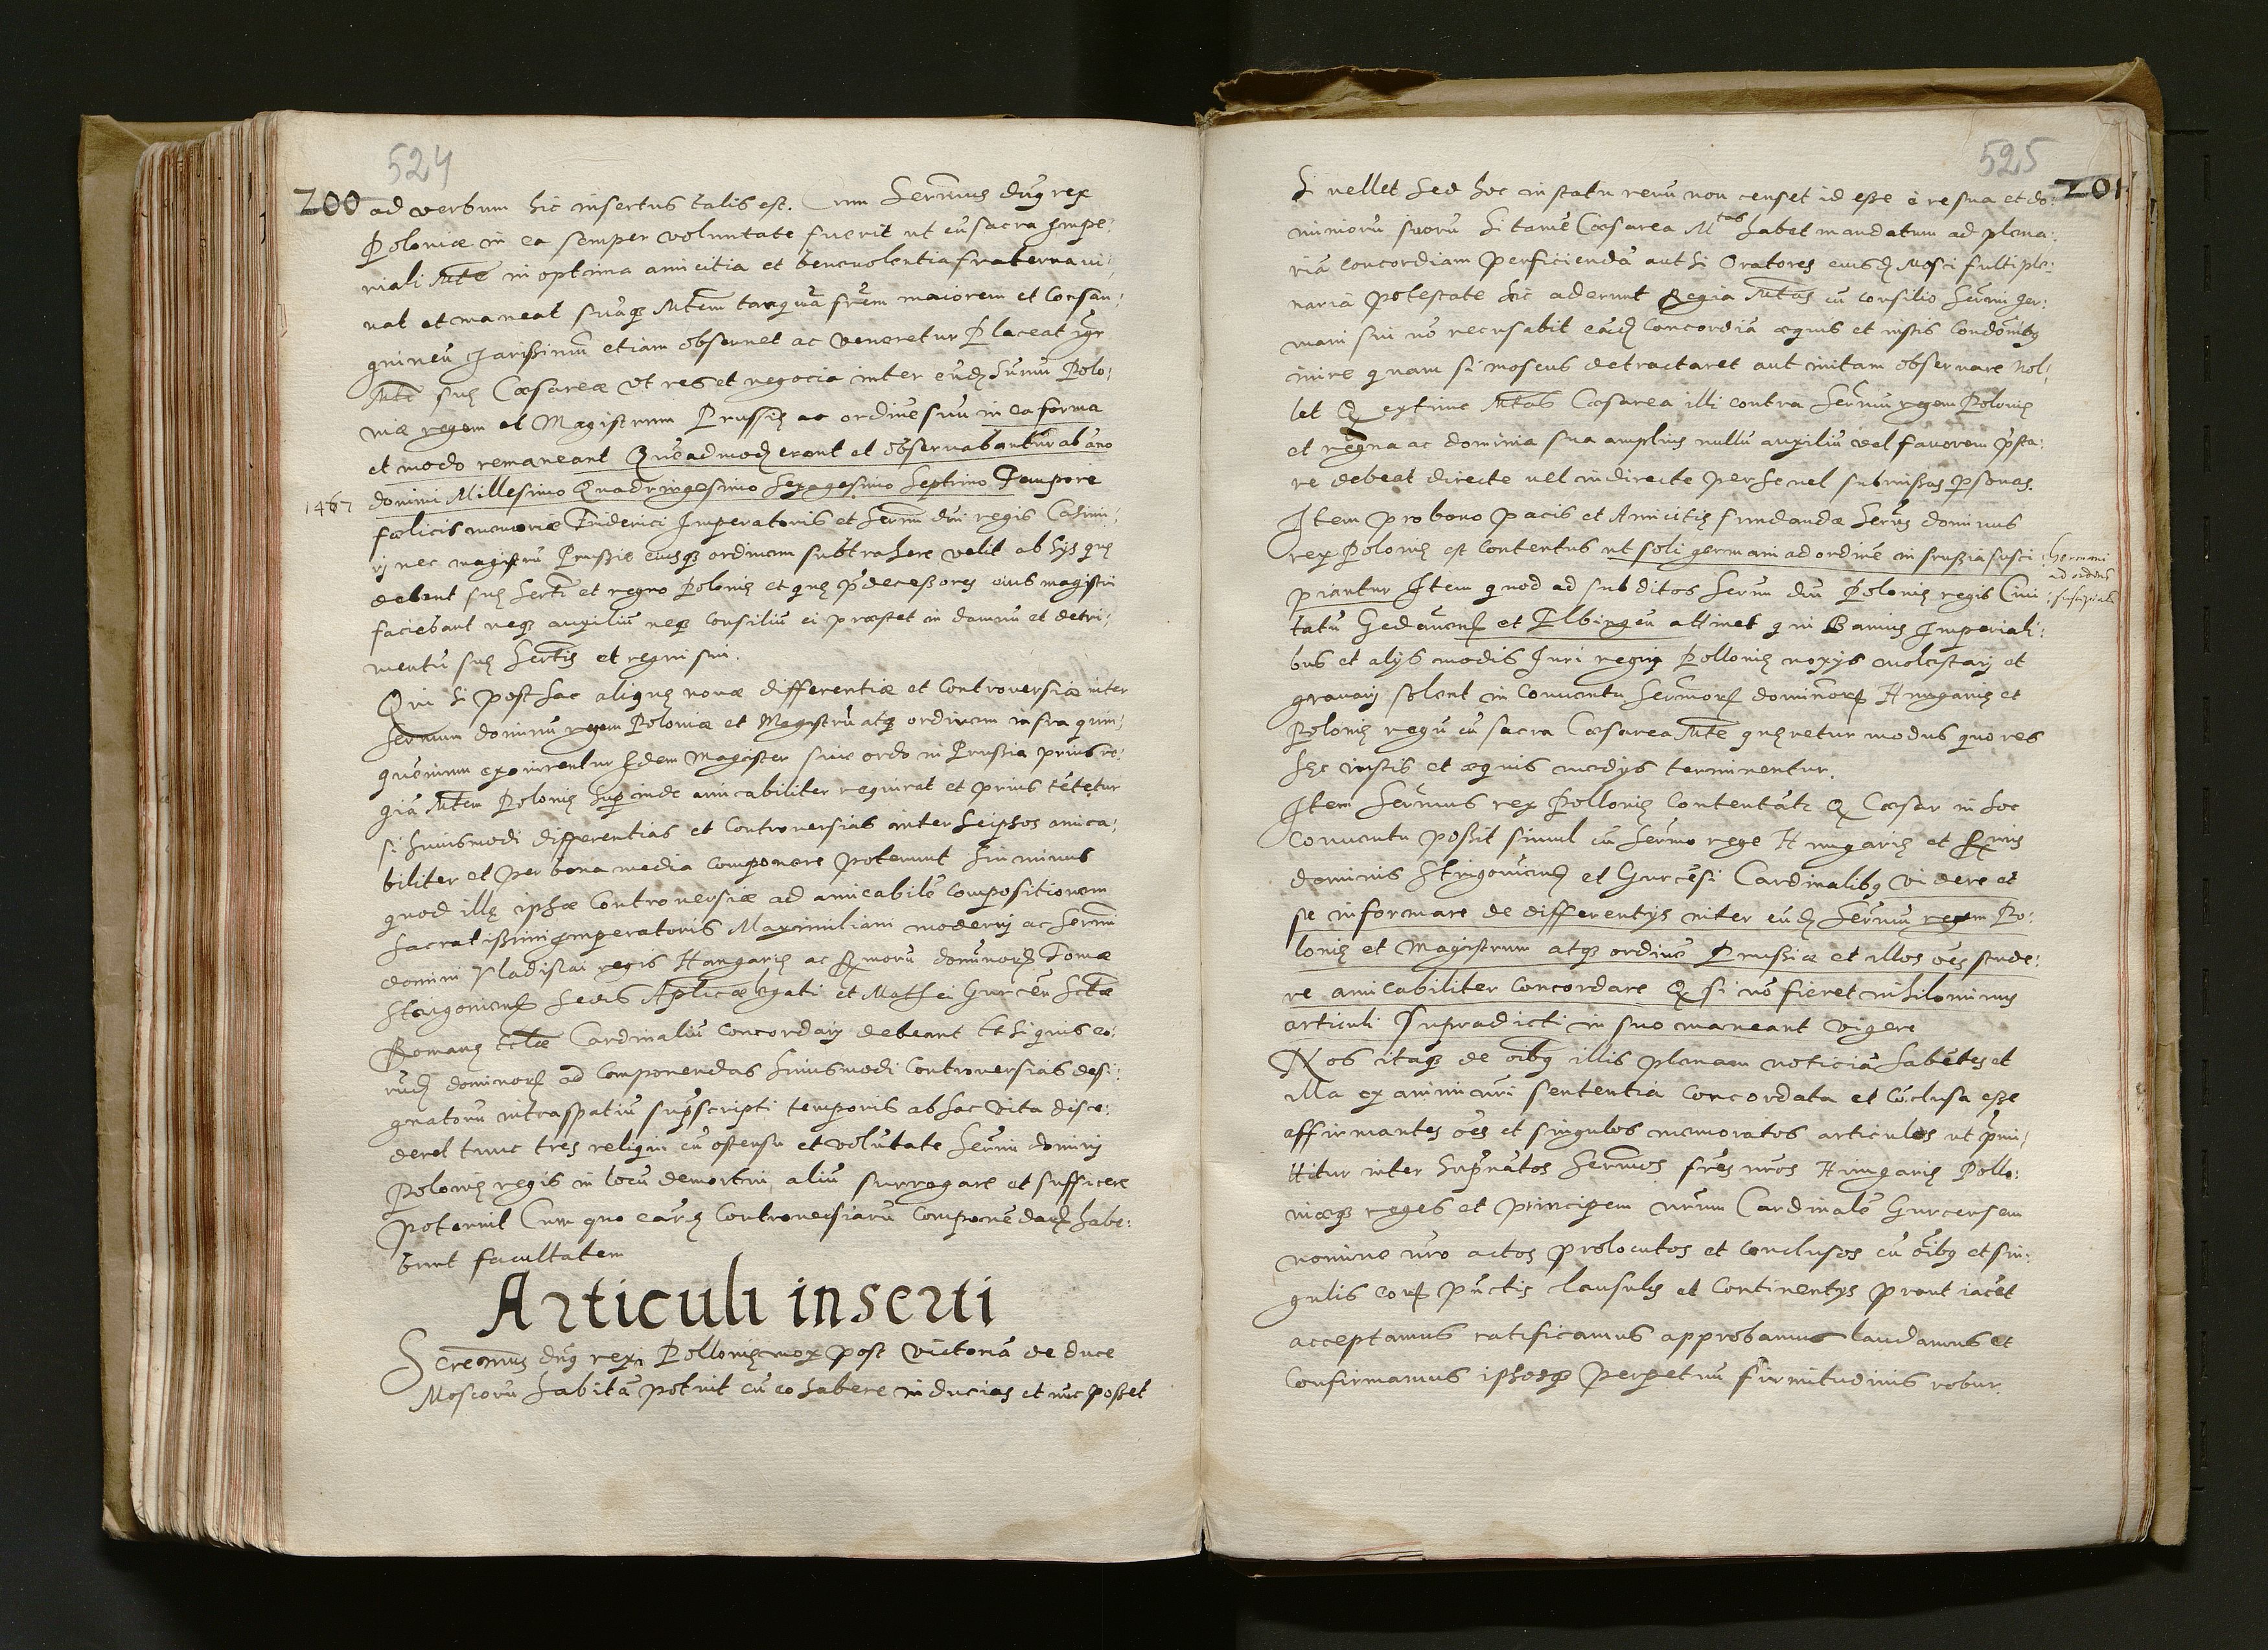 524
200 ad verbum hic insertus talis est. Cum Sermus dñs rex
Poloniæ in ea semper voluntate fuerit ut cũ sacra Impe:
riali Mte in optima amicitia et beneuolentia fraterna ui:
uat et maneat suãq; Mtem tanquã frẽm maiorem et consan:
guineũ charissimũ etiam obseruet ac veneretur Placeat igr
Mti suę Cæsareæ ut res et negocia inter eund Sermũ Polo:
niæ regem et Magistrum Prussię ac ordinẽ suũ in ea forma
et modo remaneant Quẽadmod erant et obseruabantur ab año
1467 domini Millesimo Quadringesimo Sexagesimo Septimo Tempore
fœlicis memoriæ Friderici Imperatoris et Sermi dni regis Casimi:
rj nec magistrũ Prussię eiusq; ordinem subtrahere velit ab hÿs quę
debent suę Serti et regno Polonię et quę p̃decessores eius magistri
faciebant neq; auxiliũ neq; consiliũ ei præstet in damnũ et detri:
mentũ suę Sertis et regni sui.
Qui si posthac aliquę nouæ differentiæ et controuersiæ inter
Sermum dominũ regem Poloniæ et Magistrũ atq; ordinem infra quin:
quenium exorirentur Idem Magister siue ordo in Prussia prius re:
giã Mtem Polonię sup inde amicabiliter requirat et prius tẽtetur
si huiusmodi differentias et controuersias inter seipsos amica:
biliter et per bona media componere poterunt Sin minus
quod illę ipsæ controuersiæ ad amicabilẽ compositionem
sacratissimi Imperatoris Maximiliani modernj ac Sermi
domini Vladislai regis Hungarię ac Rmorũ dominor Tomæ
Strigonien sedis Aplicæ legati et Mathei Gurcen Sctæ
Romanę ecclæ Cardinaliũ concordarj debeant Et si quis eo:
rud dominor ad componendas huiusmodi controuersias desi:
gnatorũ intra spatiũ suprascripti temporis ab hac vita disce:
deret tunc tres reliqui cũ ostensu et volũtate Sermi dominj
Polonię regis in locũ demortui aliũ surrogare et sufficere
poterunt Cum quo eard controuersiarũ componẽdar habe:
bunt facultatem
Articuli inserti
Serenmus dñs rex Pollonię mox post victoriã de duce
Moscorũ habitã potuit cũ eo habere inducias et nũc posset
525
201
Si uellet Sed hoc in statu rerũ non censet id esse è re sua et do:
miniorũ suorũ Si tamẽ Cæsarea Mtas habet mandatum ad plena:
riã concordiam perficiendã aut si Oratores eiusd Mosci fulti ple:
naria potestate hic aderunt Regia Mtas cũ consilio Sermi ger:
mani sui nõ recusabit eãd concordiã æquis et iustis condõnibus
inire quam si moscus detractaret aut initam obseruare nol:
let Q extunc Mtas Cæsarea illi contra Sermũ regem Polonię
et regna ac dominia sua amplius nullũ auxiliũ vel fauorem p̃sta:
re debeat directe uel indirecte per se uel submissas psonas.
Item pro bono pacis et Amicitię fundandæ Sermus dominus
rex Polonię est contentus ut soli germani ad ordinẽ in prussia susci:
piantur Item quod ad subditos Sermi dni Polonię regis Ciui
Germani
ad ordinẽ
suscipiãtur
tatũ Gedanen et Elbingeñ attinet qui Bannis Imperiali:
bus et alÿs modis Juri regni Pollonię noxÿs molestarj et
grauarj solent in conuentu Sermor dominor Hungarię et
Polonię regũ cũ sacra Cæsarea Mte quęretur modus quo res
hęc iustis et æquis medÿs terminentur.
Item Sermus rex Pollonię contentat Q Cæsar in hoc
conuentu possit simul cũ Sermo rege Hungarię et Rmis
dominis Strigonien et Gurcẽsi Cardinalibus videre et
se informare de differentÿs inter eund Sermũ regem Po:
lonię et Magistrum atq; ordinẽ Prussiæ et illos oẽs stude:
re amicabiliter concordare Q si nõ fieret nihilominus
articuli supradicti in suo maneant vigere
Nos itaq; de oĩbus illis plenam noticiã habẽtes et
illa ex animi nri sententia concordata et cõclusa esse
affirmantes oẽs et singulos memoratos articulos ut p̃mi:
ttitur inter supnatos Sermos fres nros Hungarię Pollo:
niæq; reges et principem nrum Cardinalẽ Gurcensem
nomine nro actos prolocutos et conclusos cũ oĩbus et sin:
gulis eor pũctis clausulis et continentÿs prout iacẽt
acceptamus ratificamus approbamus laudamus et
confirmamus ipsosq; perpetuũ firmitudinis robur